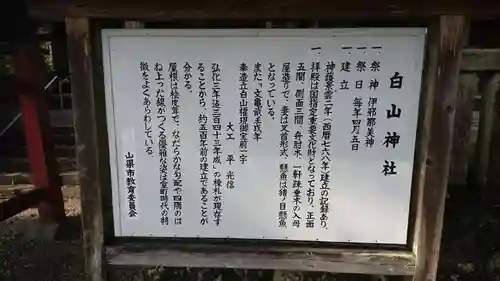 白山神社
一 祭神 伊邪那美神
一 祭日 毎年四月五日
一 建立
神護景雲二年（西暦七六八年）建立の記録あり、
拝殿は国指定重要文化財となっており、正面
五間、側面三間、舟肘木、一軒疎垂木の入母
屋造りで、妻は叉首形式、懸魚は猪ノ目懸魚
となっている。
また「文亀貮壬戌年
奉造立白山権現御宝前一宇
大工 平 光信
弘化三年迄三百四十三年成」の棟札が現存す
ることから、約五百年前の建立であることが
分かる。
屋根は桧皮葺で、なだらかな勾配や四隅のは
ね上った線がつくる優雅な姿は室町時代の特
徴をよくあらわしている。
山県市教育委員会